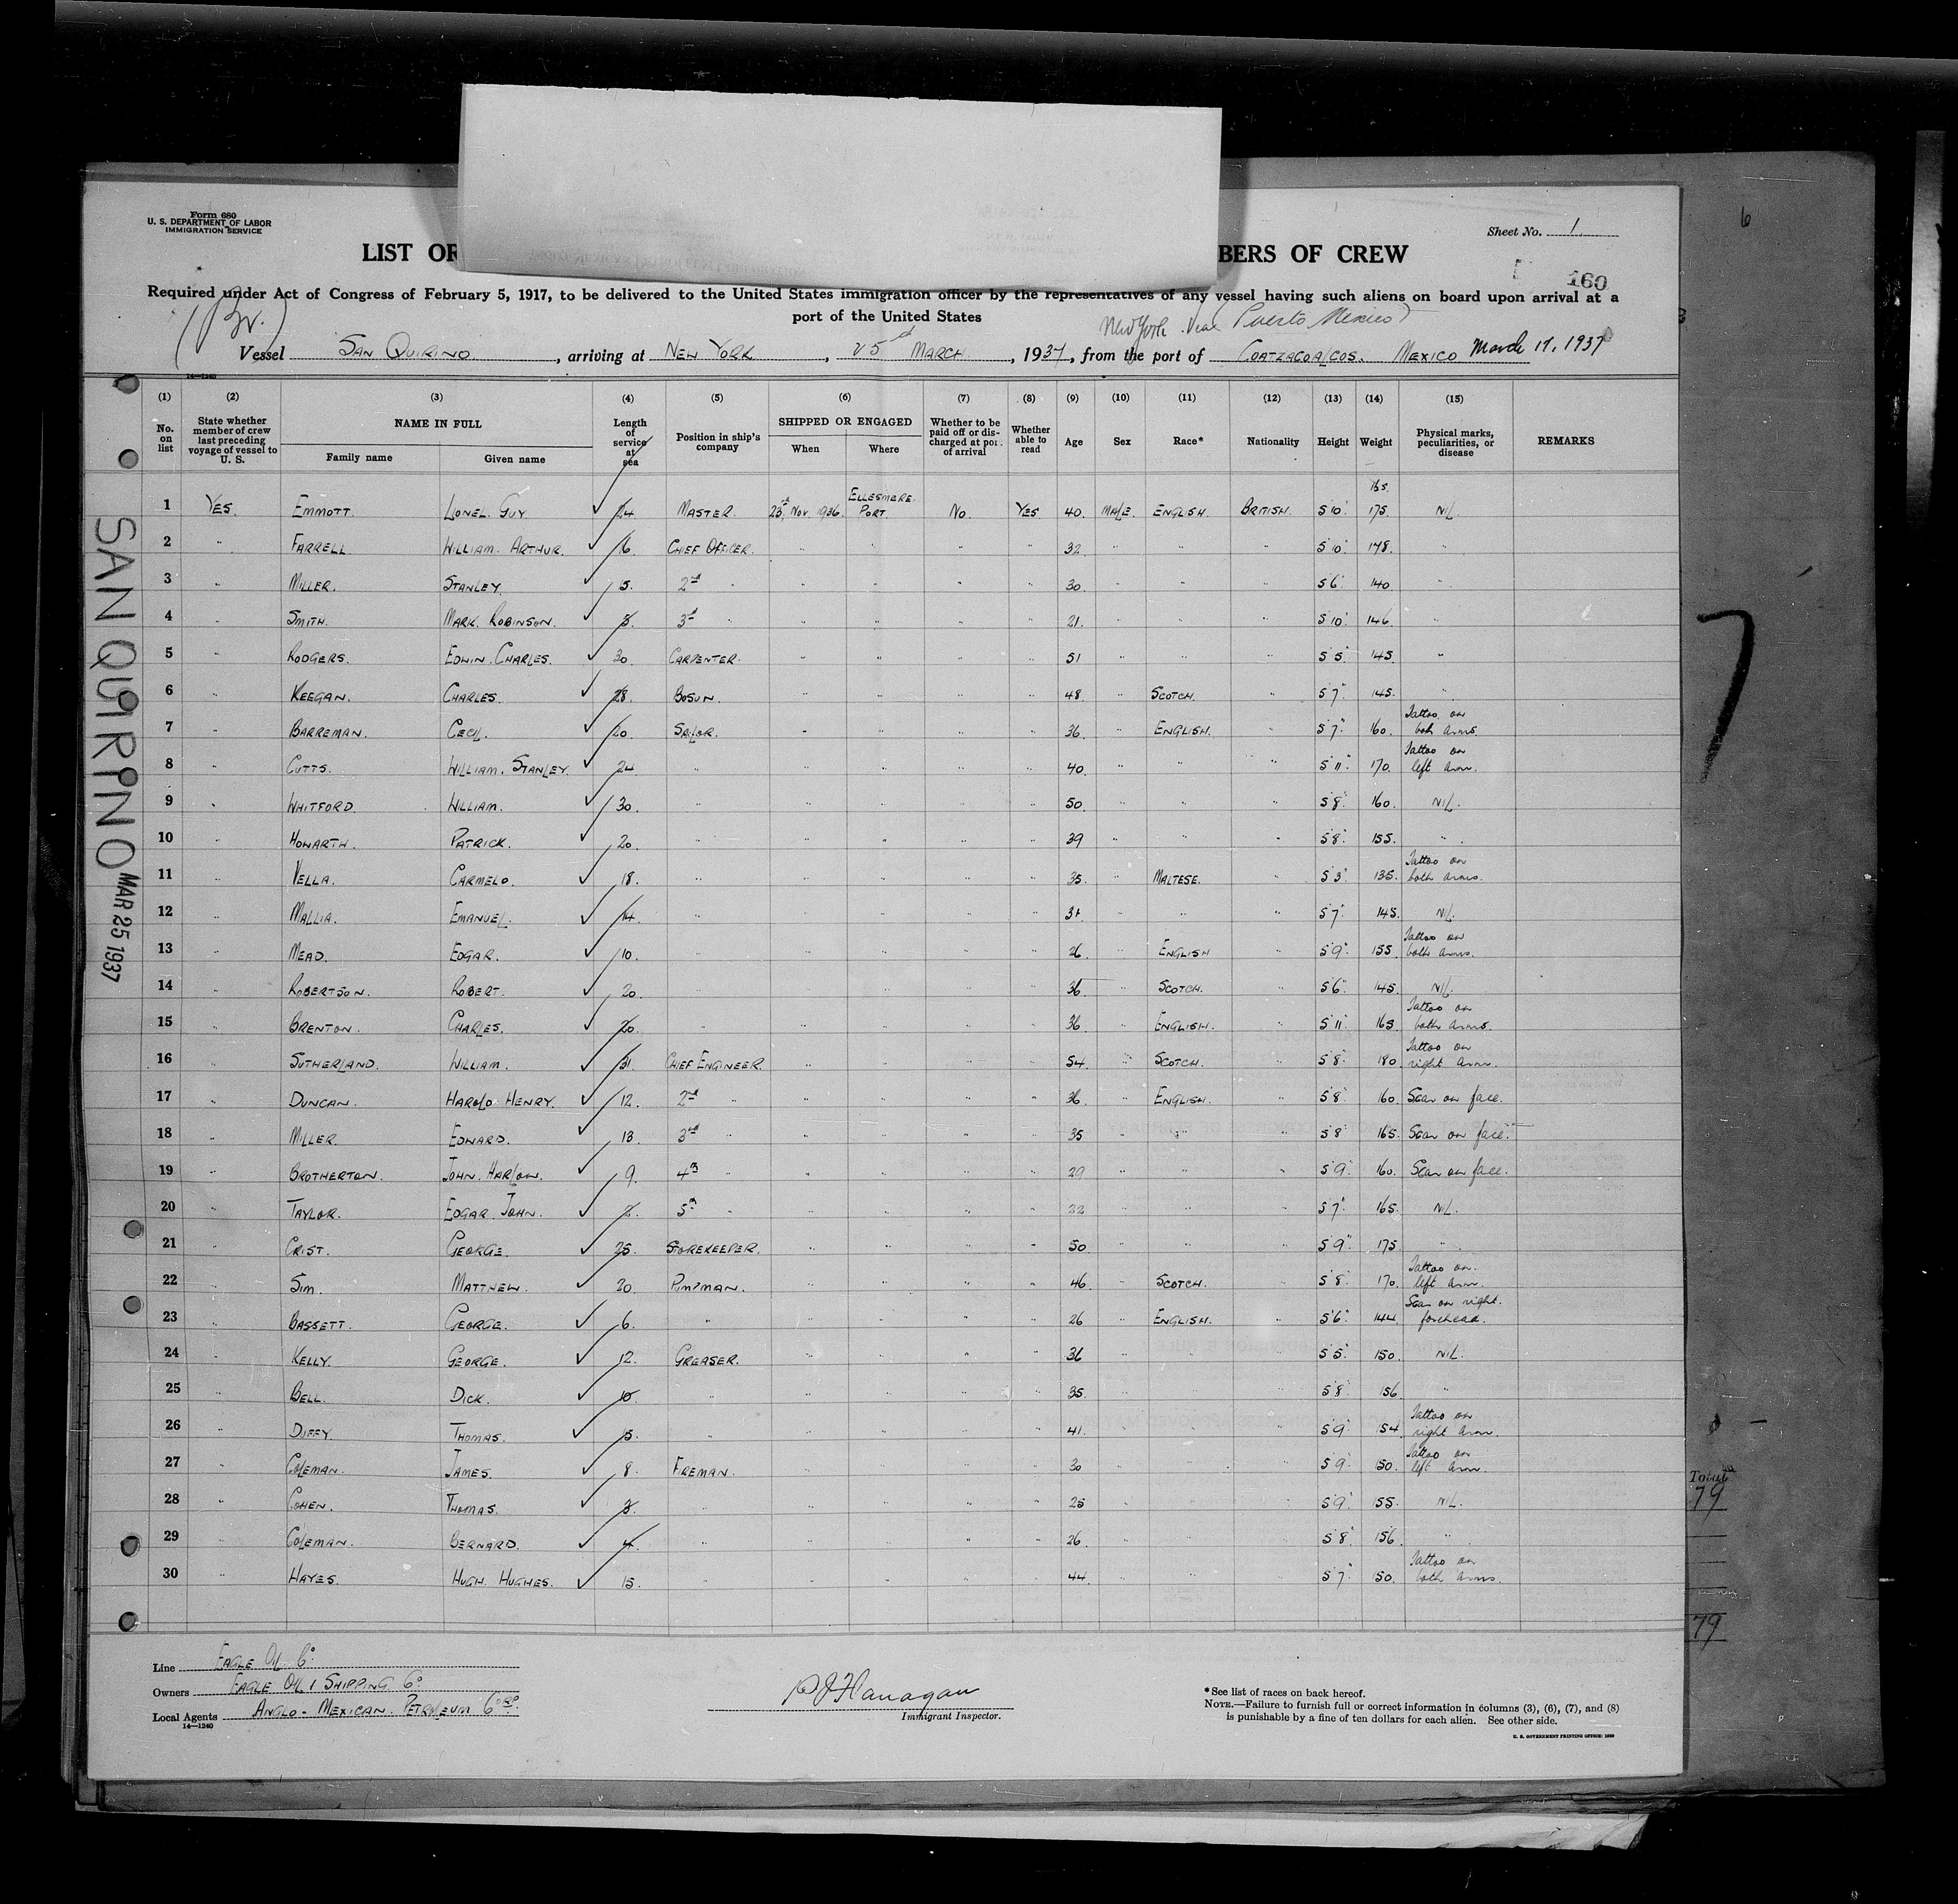 Form 680
U. S. DEPARTMENT OF LABOR
IMMIGRATION SERVICE
Sheet No. 1.
LIST OF
BERS OF CREW
160
Required under Act of Congress of February 5, 1917, to be delivered to the United States immigration officer by the representatives of any vessel having such aliens on board upon arrival at a
port of the United States
(Br.)
New York. Via (Puerto Mexico)
Vessel SAN QUIRINO, arriving at NEW YORK, 25 MARCH, 1937, from the port of COATZACOALCOS. MEXICO March 17, 1937
14—1240
(1) (2) (3) (4) (5) (6) (7) (8) (9) (10) (11) (12) (13) (14) (15)
No. on list
State whether member of crew last preceding voyage of vessel to U. S.
NAME IN FULL
Family name
Given name
Length of service at sea
Position in ship's company
SHIPPED OR ENGAGED
When
Where
Whether to be paid off or discharged at port of arrival
Whether able to read
Age
Sex
Race*
Nationality
Height
Weight
Physical marks, peculiarities, or disease
REMARKS
165.
1 YES. EMMOTT. LIONEL GUY 24 MASTER. 23rd Nov. 1936. ELLESMERE PORT. NO. YES 40. MALE. ENGLISH. BRITISH. 5'10" 175. NIL.
2 " FARRELL. WILLIAM ARTHUR. 16. CHIEF OFFICER. " " " " 32. " " " 5'10" 178. "
3 " MILLER. STANLEY. 15. 2nd " " " " " 30. " " " 5'6" 140 "
4 " SMITH. MARK ROBINSON. 5. 3rd " " " " " 21. " " " 5'10" 146. "
5 " RODGERS. EDWIN CHARLES. 30 CARPENTER. " " " " 51 " " " 5'5" 145. "
6 " KEEGAN. CHARLES. 28. BOSUN. " " " " 48. " SCOTCH. " 5'7" 145. "
7 " BARREMAN. CECIL. 20. SAILOR. " " " " 36. " ENGLISH. " 5'7" 160. Tattoo on both arms.
8 " CUTTS. WILLIAM. STANLEY. 24. " " " " " 40. " " " 5'11" 170. Tattoo on left arm.
9 " WHITFORD. WILLIAM. 30. " " " " " 50. " " " 5'8" 160. NIL.
10 " HOWARTH. PATRICK. 20. " " " " " 39 " " " 5'8" 155. "
11 " VELLA. CARMELO. 18. " " " " " 35. " MALTESE. " 5'3" 135. Tattoo on both arms.
12 " MALLIA. EMANUEL. 14. " " " " " 31. " " " 5'7" 145. NIL.
13 " MEAD. EDGAR. 10. " " " " " 26. " ENGLISH " 5'9" 155. Tattoo on both arms.
14 " ROBERTSON. ROBERT. 20. " " " " " 36 " SCOTCH. " 5'6" 145. NIL.
15 " BRENTON. CHARLES. 20. " " " " " 36. " ENGLISH. " 5'11" 165 Tattoo on both arms.
16 " SUTHERLAND. WILLIAM. 31. CHIEF ENGINEER. " " " " 54. " SCOTCH. " 5'8" 180 Tattoo on right arm.
17 " DUNCAN. HAROLD HENRY. 12. 2nd " " " " " 36. " ENGLISH. " 5'8" 160. Scar on face.
18 " MILLER. EDWARD. 13. 3rd " " " " " 35 " " " 5'8" 165. Scar on face.
19 " BROTHERTON. JOHN. HARLOW. 9. 4th " " " " " 29 " " " 5'9" 160. Scar on face.
20 " TAYLOR. EDGAR. JOHN. 2. 5th " " " " " 22 " " " 5'7" 165. NIL.
21 " CRIST. GEORGE. 25. STOREKEEPER. " " " " 50 " " " 5'9" 175. "
22 " SIM. MATTHEW. 20. PUMPMAN. " " " " 46. " SCOTCH. " 5'8" 170. Tattoo on left arm.
23 " BASSETT. GEORGE. 6. " " " " " 26 " ENGLISH. " 5'6" 144. Scar on right forehead.
24 " KELLY. GEORGE. 12. GREASER. " " " " 36 " " " 5'5" 150. NIL.
25 " BELL. DICK. 10. " " " " " 35. " " " 5'8" 156 "
26 " DIFFY. THOMAS. 15. " " " " " 41. " " " 5'9" 154. Tattoo on right arm.
27 " COLEMAN. JAMES. 8. FIREMAN. " " " " 30 " " " 5'9" 150. Tattoo on left arm.
28 " COHEN. THOMAS. 3. " " " " " 25 " " " 5'9" 155. NIL.
29 " COLEMAN. BERNARD. 4. " " " " " 26. " " " 5'8" 156. "
30 " HAYES. HUGH HUGHES. 15. " " " " " 44. " " " 5'7" 150. Tattoo on both arms.
SAN QUIRINO
MAR 25 1937
6
7
Total
79
79
Line EAGLE OIL Co.
Owners EAGLE OIL & SHIPPING Co
Local Agents ANGLO-MEXICAN. PETROLEUM CORP.
14—1240
Immigrant Inspector.
*See list of races on back hereof.
NOTE.—Failure to furnish full or correct information in columns (3), (6), (7), and (8)
is punishable by a fine of ten dollars for each alien. See other side.